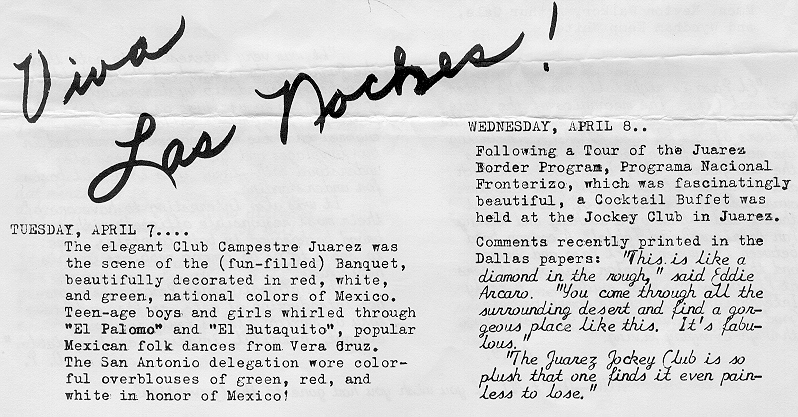 Viva
Las Noches!
TUESDAY, APRIL 7....
The elegant Club Campestre Juarez was
the scene of the (fun-filled) Banquet,
beautifully decorated in red, white,
and green, national colors of Mexico.
Teen-age boys and girls whirled through
"El Palomo" and "El Butaquito", popular
Mexican folk dances from Vera Cruz.
The San Antonio delegation wore color-
ful overblouses of green, red, and
white in honor of Mexico!
WEDNESDAY, APRIL 8..
Following a Tour of the Juarez
Border Program, Programa Nacional
Fronterizo, which was fascinatingly
beautiful, a Cocktail Buffet was
held at the Jockey Club in Juarez.
Comments recently printed in the
Dallas papers: "This is like a
diamond in the rough," said Eddie
Arcaro. "You come through all the
surrounding desert and find a gor-
geous place like this. It's fabu-
lous."
"The Juarez Jockey Club is so
plush that one finds it even pain-
less to lose."